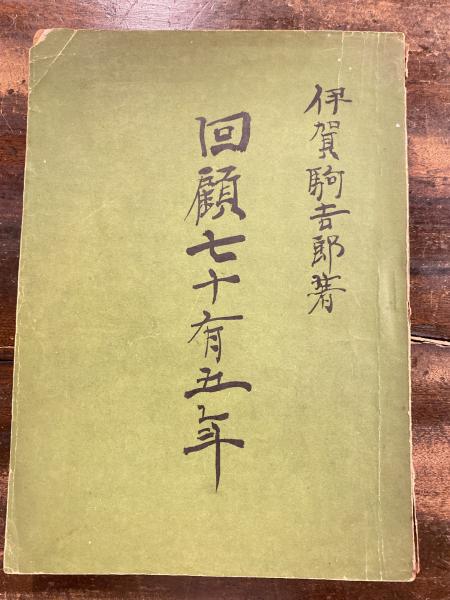 伊賀駒吉郎著
回顧七十有五年